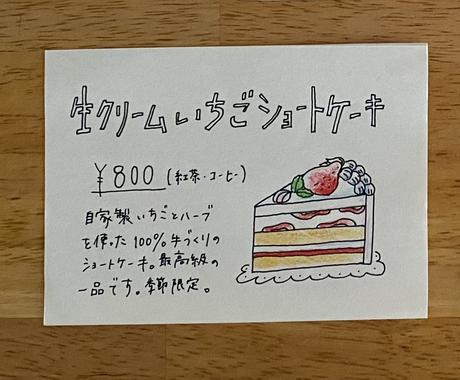 生クリームいちごショートケーキ
¥800 (紅茶・コーヒー)
自家製いちごとハーブ
を使った100%手づくりの
ショートケーキ。最高級の
一品です。季節限定。